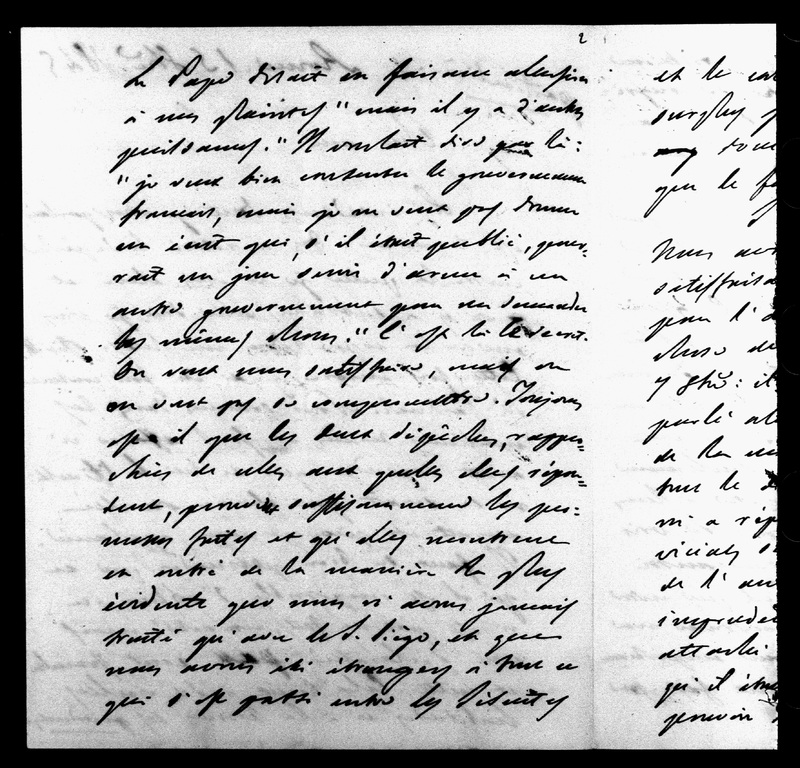 2
Le Pape disait en faisant allusion
à nos plaintes "mais il y a d'autres
puissances." Il voulait dire par là :
"je veux bien contenter le gouvernement
français, mais je ne veux pas donner
un écrit qui, s'il était publié, pour-
rait un jour servir d'arme à un
autre gouvernement pour me demander
les mêmes choses." C'est là le secret.
On veut nous satisfaire, mais on
ne veut pas se compromettre. Toujours
est-il que les deux dépêches, rappro-
chées de celles aux quelles elles répon-
dent, prouvent suffisamment les pro-
messes faites et qu'elles montrent
en outre de la manière la plus
évidente que nous n'avons jamais
traité qu'avec le S. Siège, et que
nous avons été étrangers à tout ce
qui s'est passé entre les Jésuites
et le
surplus
que le
Nous
pour l'
chose de
parlé
de la
tout le
ni a
de l'
attaché
qu'il